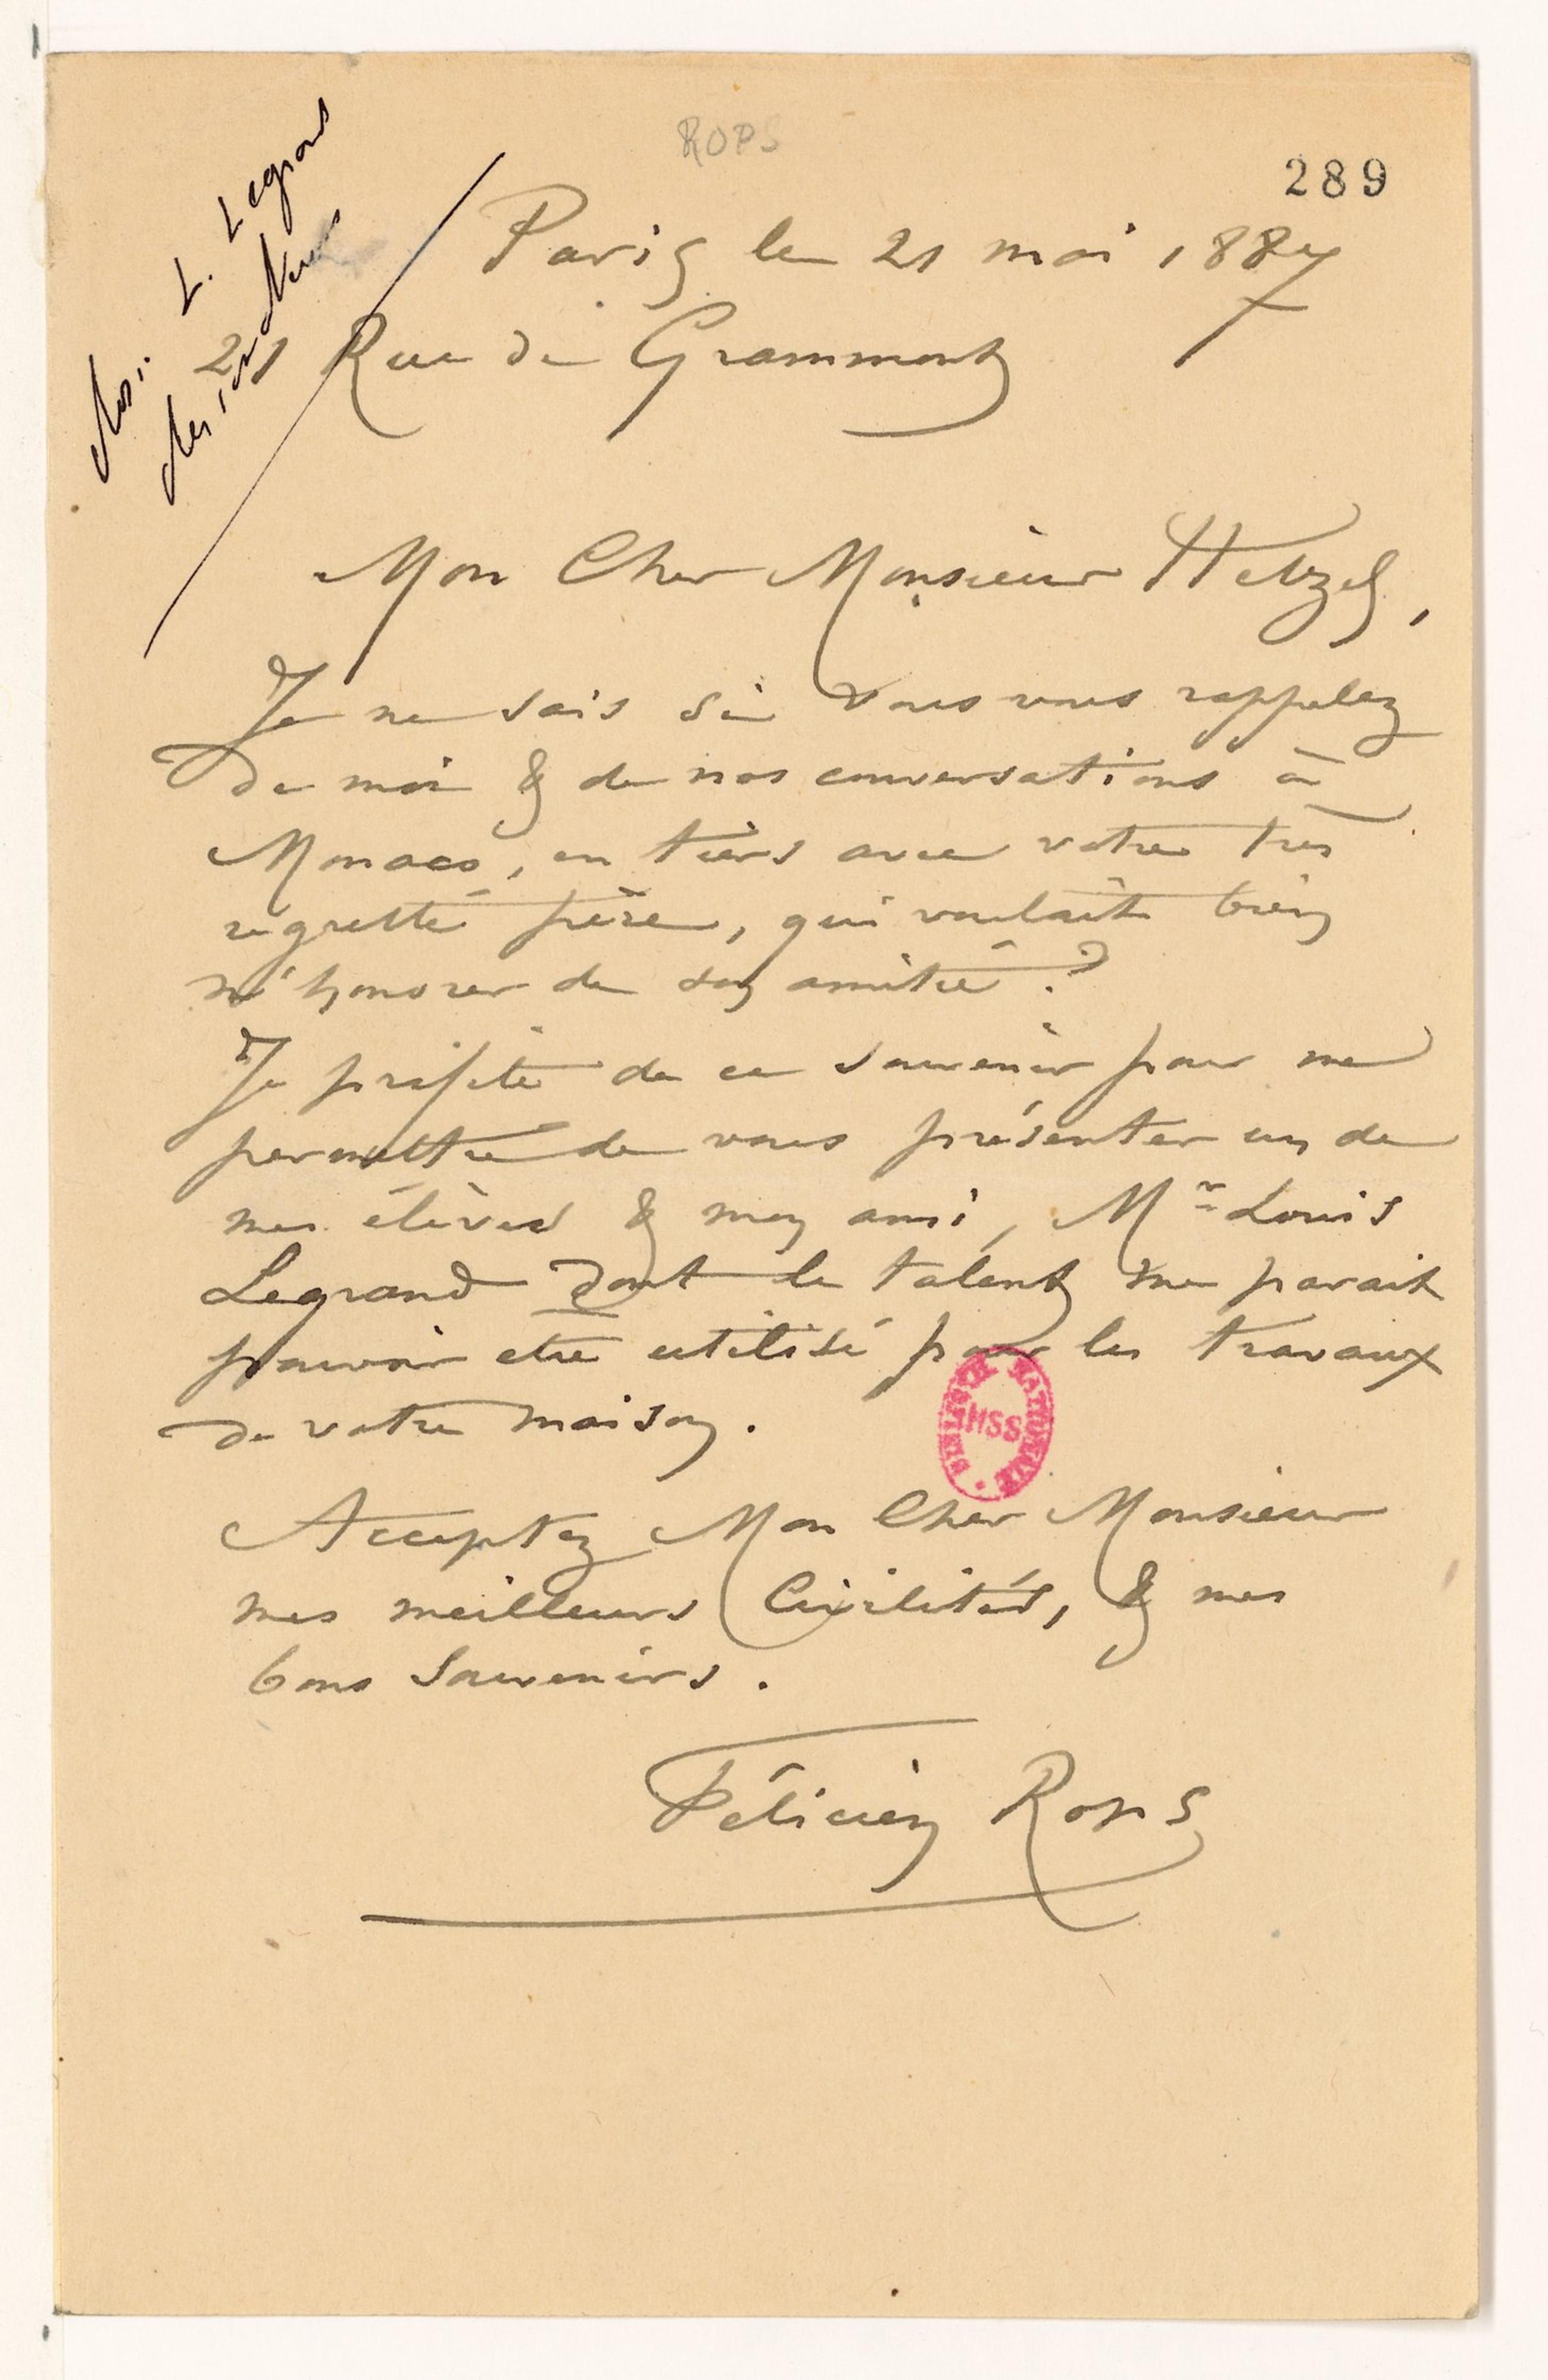 ROPS
289
L. Legrand
Paris le 21 mai 1887
21 Rue de Grammont
Mon Cher Monsieur Hetzel,
Je ne sais si vous vous rappelez
de moi & de nos conversations à
Monaco, en tiers avec votre très
regretté père, qui voulait bien
m'honorer de son amitié ?
Je profite de ce souvenir pour me
permettre de vous présenter un de
mes élèves & mon ami, Mr Louis
Legrand dont le talent me parait
pouvoir etre utilisé pour les travaux
de votre maison.
Acceptez Mon Cher Monsieur
mes meilleurs Civilités, & mes
bons souvenirs.
Félicien Rops
BIBLIOTH. NATIONALE
MSS